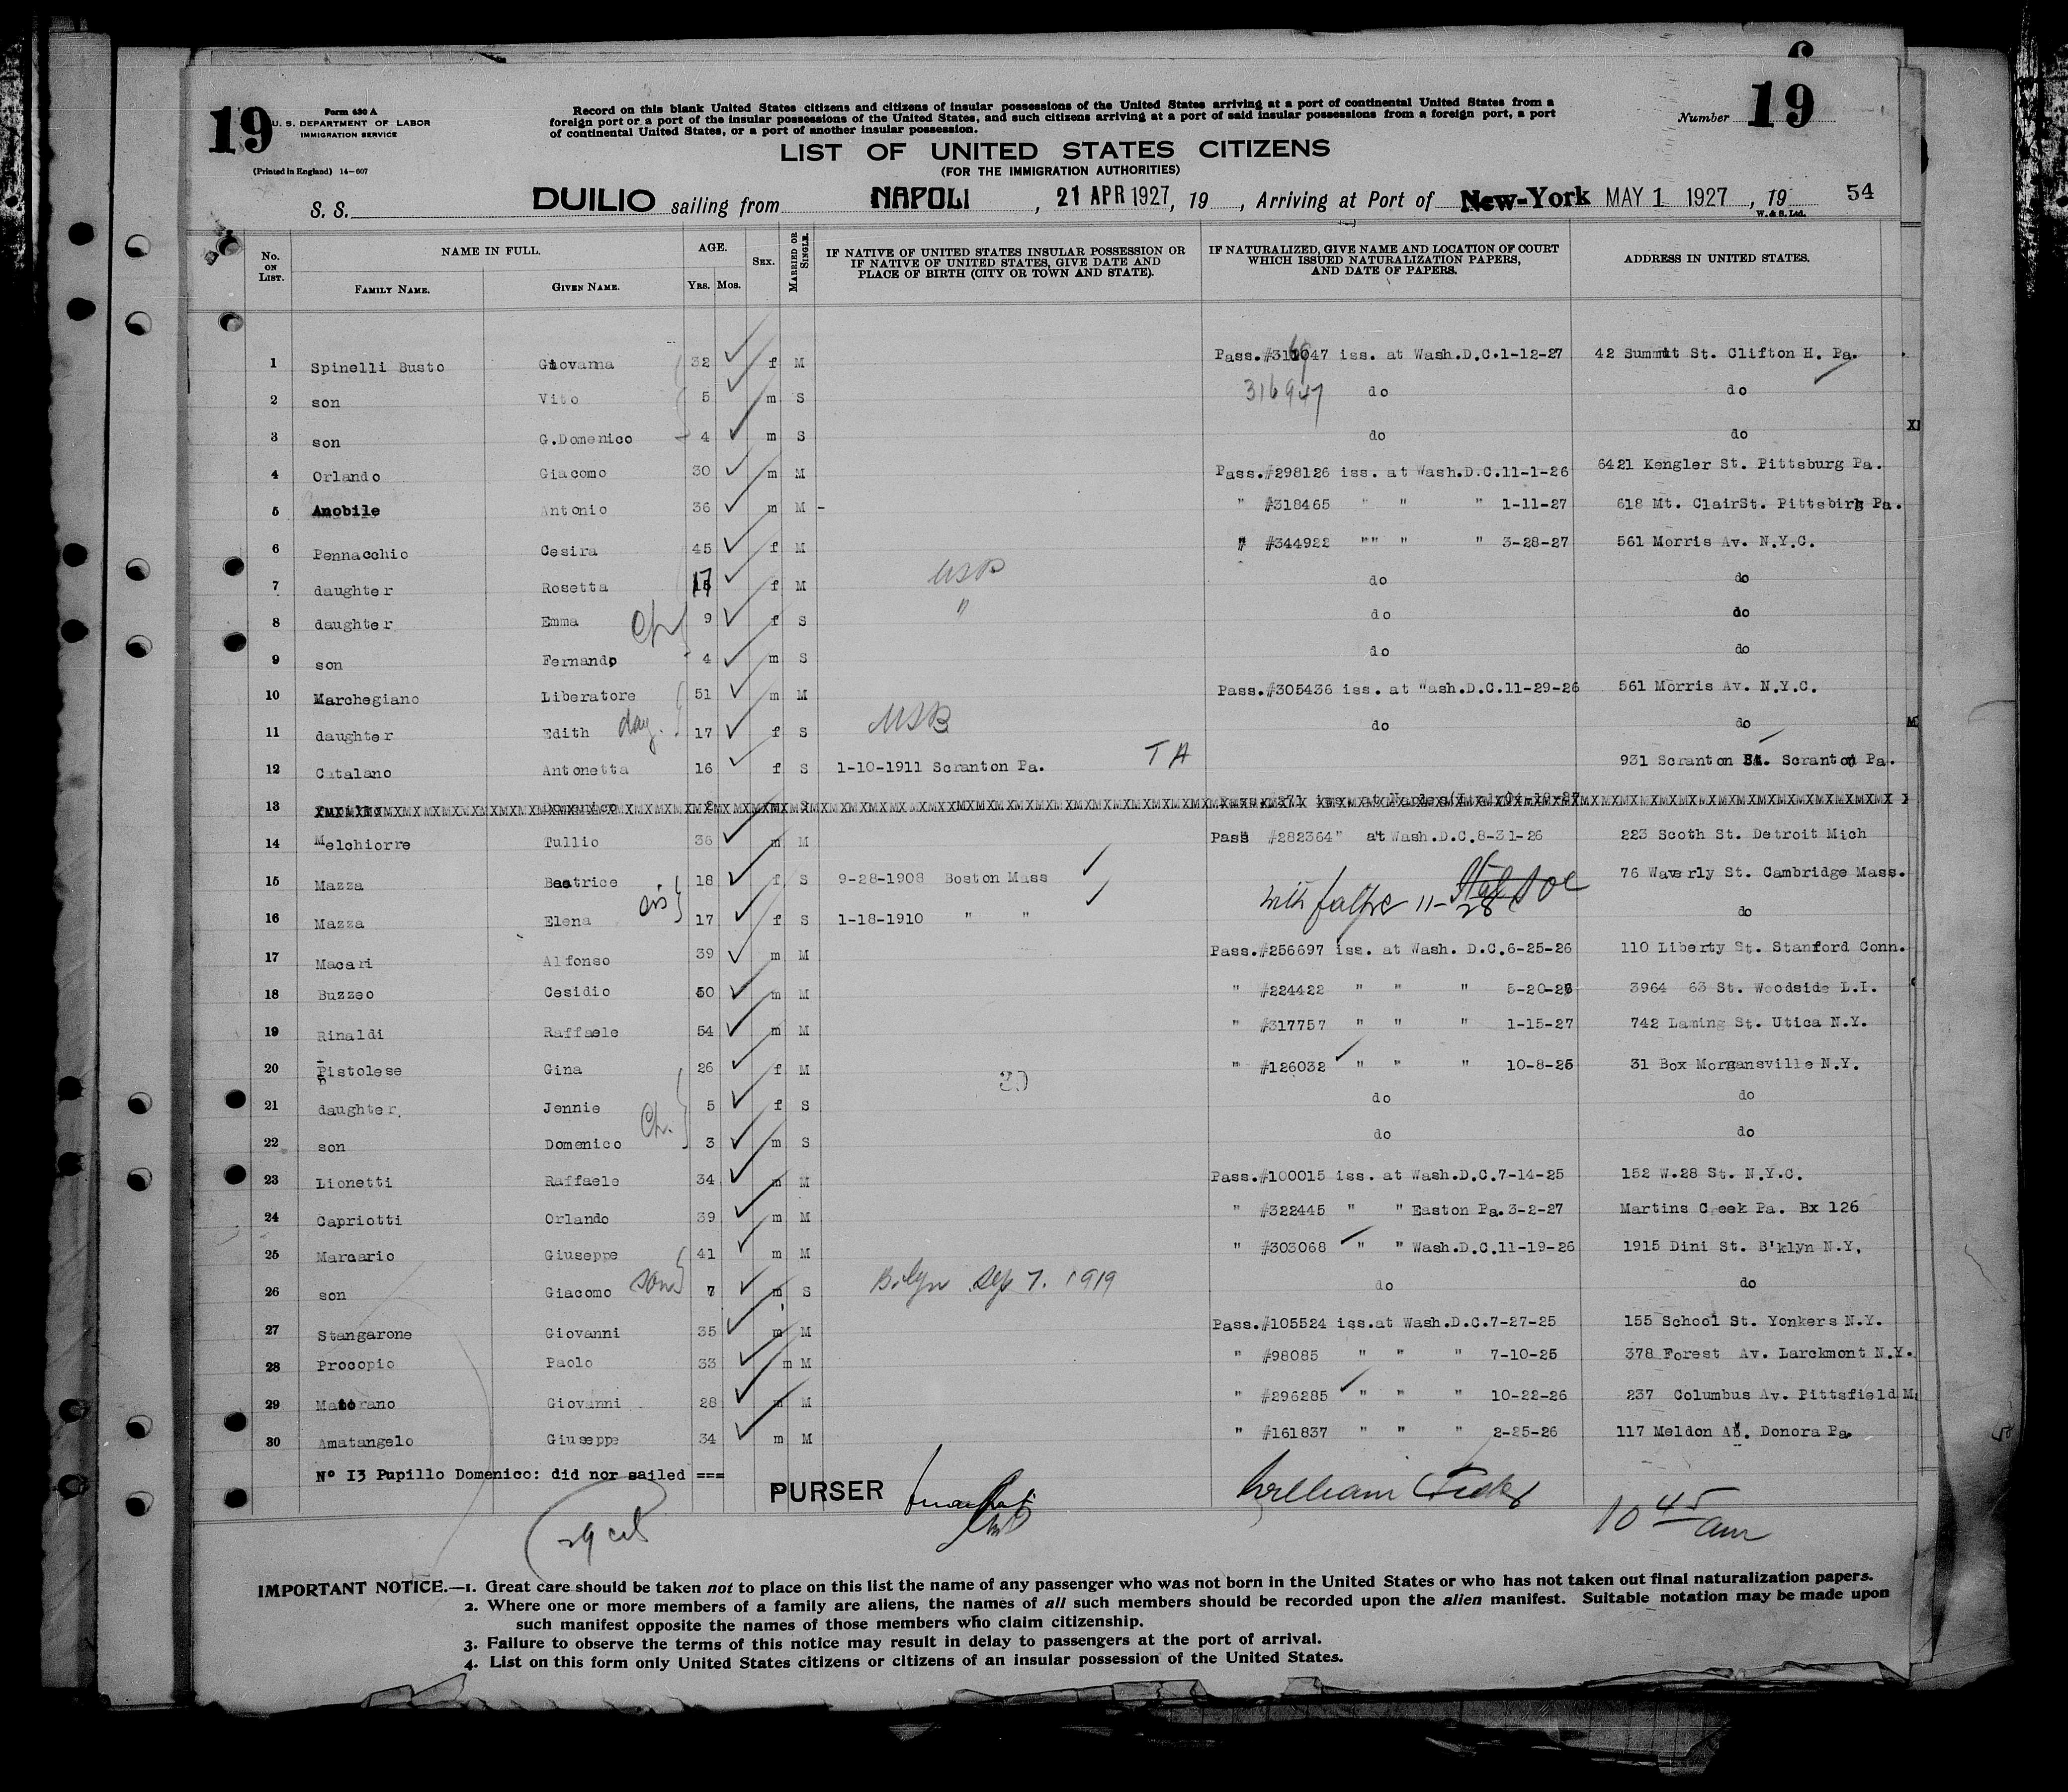 6
19
Form 630 A
U. S. DEPARTMENT OF LABOR
IMMIGRATION SERVICE
(Printed in England) 14-607
Record on this blank United States citizens and citizens of insular possessions of the United States arriving at a port of continental United States from a
foreign port or a port of the insular possessions of the United States, and such citizens arriving at a port of said insular possessions from a foreign port, a port
of continental United States, or a port of another insular possession.
Number 19
LIST OF UNITED STATES CITIZENS
(FOR THE IMMIGRATION AUTHORITIES)
S. S. DUILIO sailing from NAPOLI, 21 APR 1927, 19 , Arriving at Port of New-York MAY 1 1927, 19 54
W. & S. Ltd.
No. ON LIST. NAME IN FULL. FAMILY NAME. GIVEN NAME. AGE. YRS. MOS. SEX. MARRIED OR SINGLE. IF NATIVE OF UNITED STATES INSULAR POSSESSION OR IF NATIVE OF UNITED STATES, GIVE DATE AND PLACE OF BIRTH (CITY OR TOWN AND STATE). IF NATURALIZED, GIVE NAME AND LOCATION OF COURT WHICH ISSUED NATURALIZATION PAPERS, AND DATE OF PAPERS. ADDRESS IN UNITED STATES.
1 Spinelli Busto Giovanna 32 f M Pass. iss. at Wash.D.C.1-12-27 42 Summit St. Clifton H. Pa.
2 son Vito 5 m S 316947 do do
3 son G.Domenico 4 m S do do
4 Orlando Giacomo 30 m M Pass.#298126 iss. at Wash.D.C.11-1-26 6421 Kengler St. Pittsburg Pa.
5 Anobile Antonio 36 m M - " #318465 " " " 1-11-27 618 Mt. ClairSt. Pittsbirh Pa.
6 Pennacchio Cesira 45 f M " #344922 "" " " 3-28-27 561 Morris Av. N.Y.C.
7 daughter Rosetta 17 f M USB do do
8 daughter Emma Ch 9 f S " do do
9 son Fernando 4 m S do do
10 Marchegiano Liberatore 51 m M Pass.#305436 iss. at Wash.D.C.11-29-26 561 Morris Av. N.Y.C.
11 daughter Edith 17 f S USB do do
12 Catalano Antonetta 16 f S 1-10-1911 Scranton Pa. T A 931 Scranton St. Scranton Pa.
13
14 Melchiorre Tullio 36 m M Pass #282364" at Wash.D.C.8-31-26 223 Scoth St. Detroit Mich
15 Mazza Beatrice 18 f S 9-28-1908 Boston Mass 76 Waverly St. Cambridge Mass.
16 Mazza Elena sis 17 f S 1-18-1910 " " with father 11-28 do
17 Macari Alfonso 39 m M Pass.#256697 iss. at Wash. D.C.6-25-26 110 Liberty St. Stanford Conn.
18 Buzzeo Cesidio 50 m M " #224422 " " " 5-20-26 3964 63 St. Woodside L.I.
19 Rinaldi Raffaele 54 m M " #317757 " " " 1-15-27 742 Laming St. Utica N.Y.
20 Pistolese Gina 26 f M " #126032 " " " 10-8-25 31 Box Morgansville N.Y.
21 daughter Jennie 5 f S do do
22 son Domenico Ch. 3 m S do do
23 Lionetti Raffaele 34 m M Pass.#100015 iss. at Wash.D.C.7-14-25 152 W.28 St. N.Y.C.
24 Capriotti Orlando 39 m M " #322445 " " Easton Pa.3-2-27 Martins Creek Pa. Bx 126
25 Marcario Giuseppe 41 m M " #303068 " " Wash.D.C.11-19-26 1915 Dini St. B'klyn N.Y.
26 son Giacomo son 7 m S Bklyn Sep 7. 1919 do do
27 Stangarone Giovanni 35 m M Pass.#105524 iss.at Wash.D.C.7-27-25 155 School St. Yonkers N.Y.
28 Procopio Paolo 33 m M " #98085 " " " 7-10-25 378 Forest Av. Larckmont N.Y.
29 Giovanni 28 m M " #296285 " " " 10-22-26 237 Columbus Av. Pittsfield
30 Amatangelo Giuseppe 34 m M " #161837 " " " 2-25-26 117 Meldon Av. Donora Pa.
Nº 13 Pupillo Domenico: did nor sailed ===
PURSER
William
10 45 am
29
IMPORTANT NOTICE.—1. Great care should be taken not to place on this list the name of any passenger who was not born in the United States or who has not taken out final naturalization papers.
2. Where one or more members of a family are aliens, the names of all such members should be recorded upon the alien manifest. Suitable notation may be made upon
such manifest opposite the names of those members who claim citizenship.
3. Failure to observe the terms of this notice may result in delay to passengers at the port of arrival.
4. List on this form only United States citizens or citizens of an insular possession of the United States.